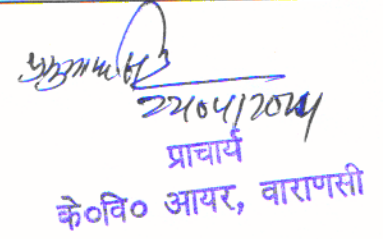 22/04/2024
प्राचार्य
के०वि० आयर, वाराणसी